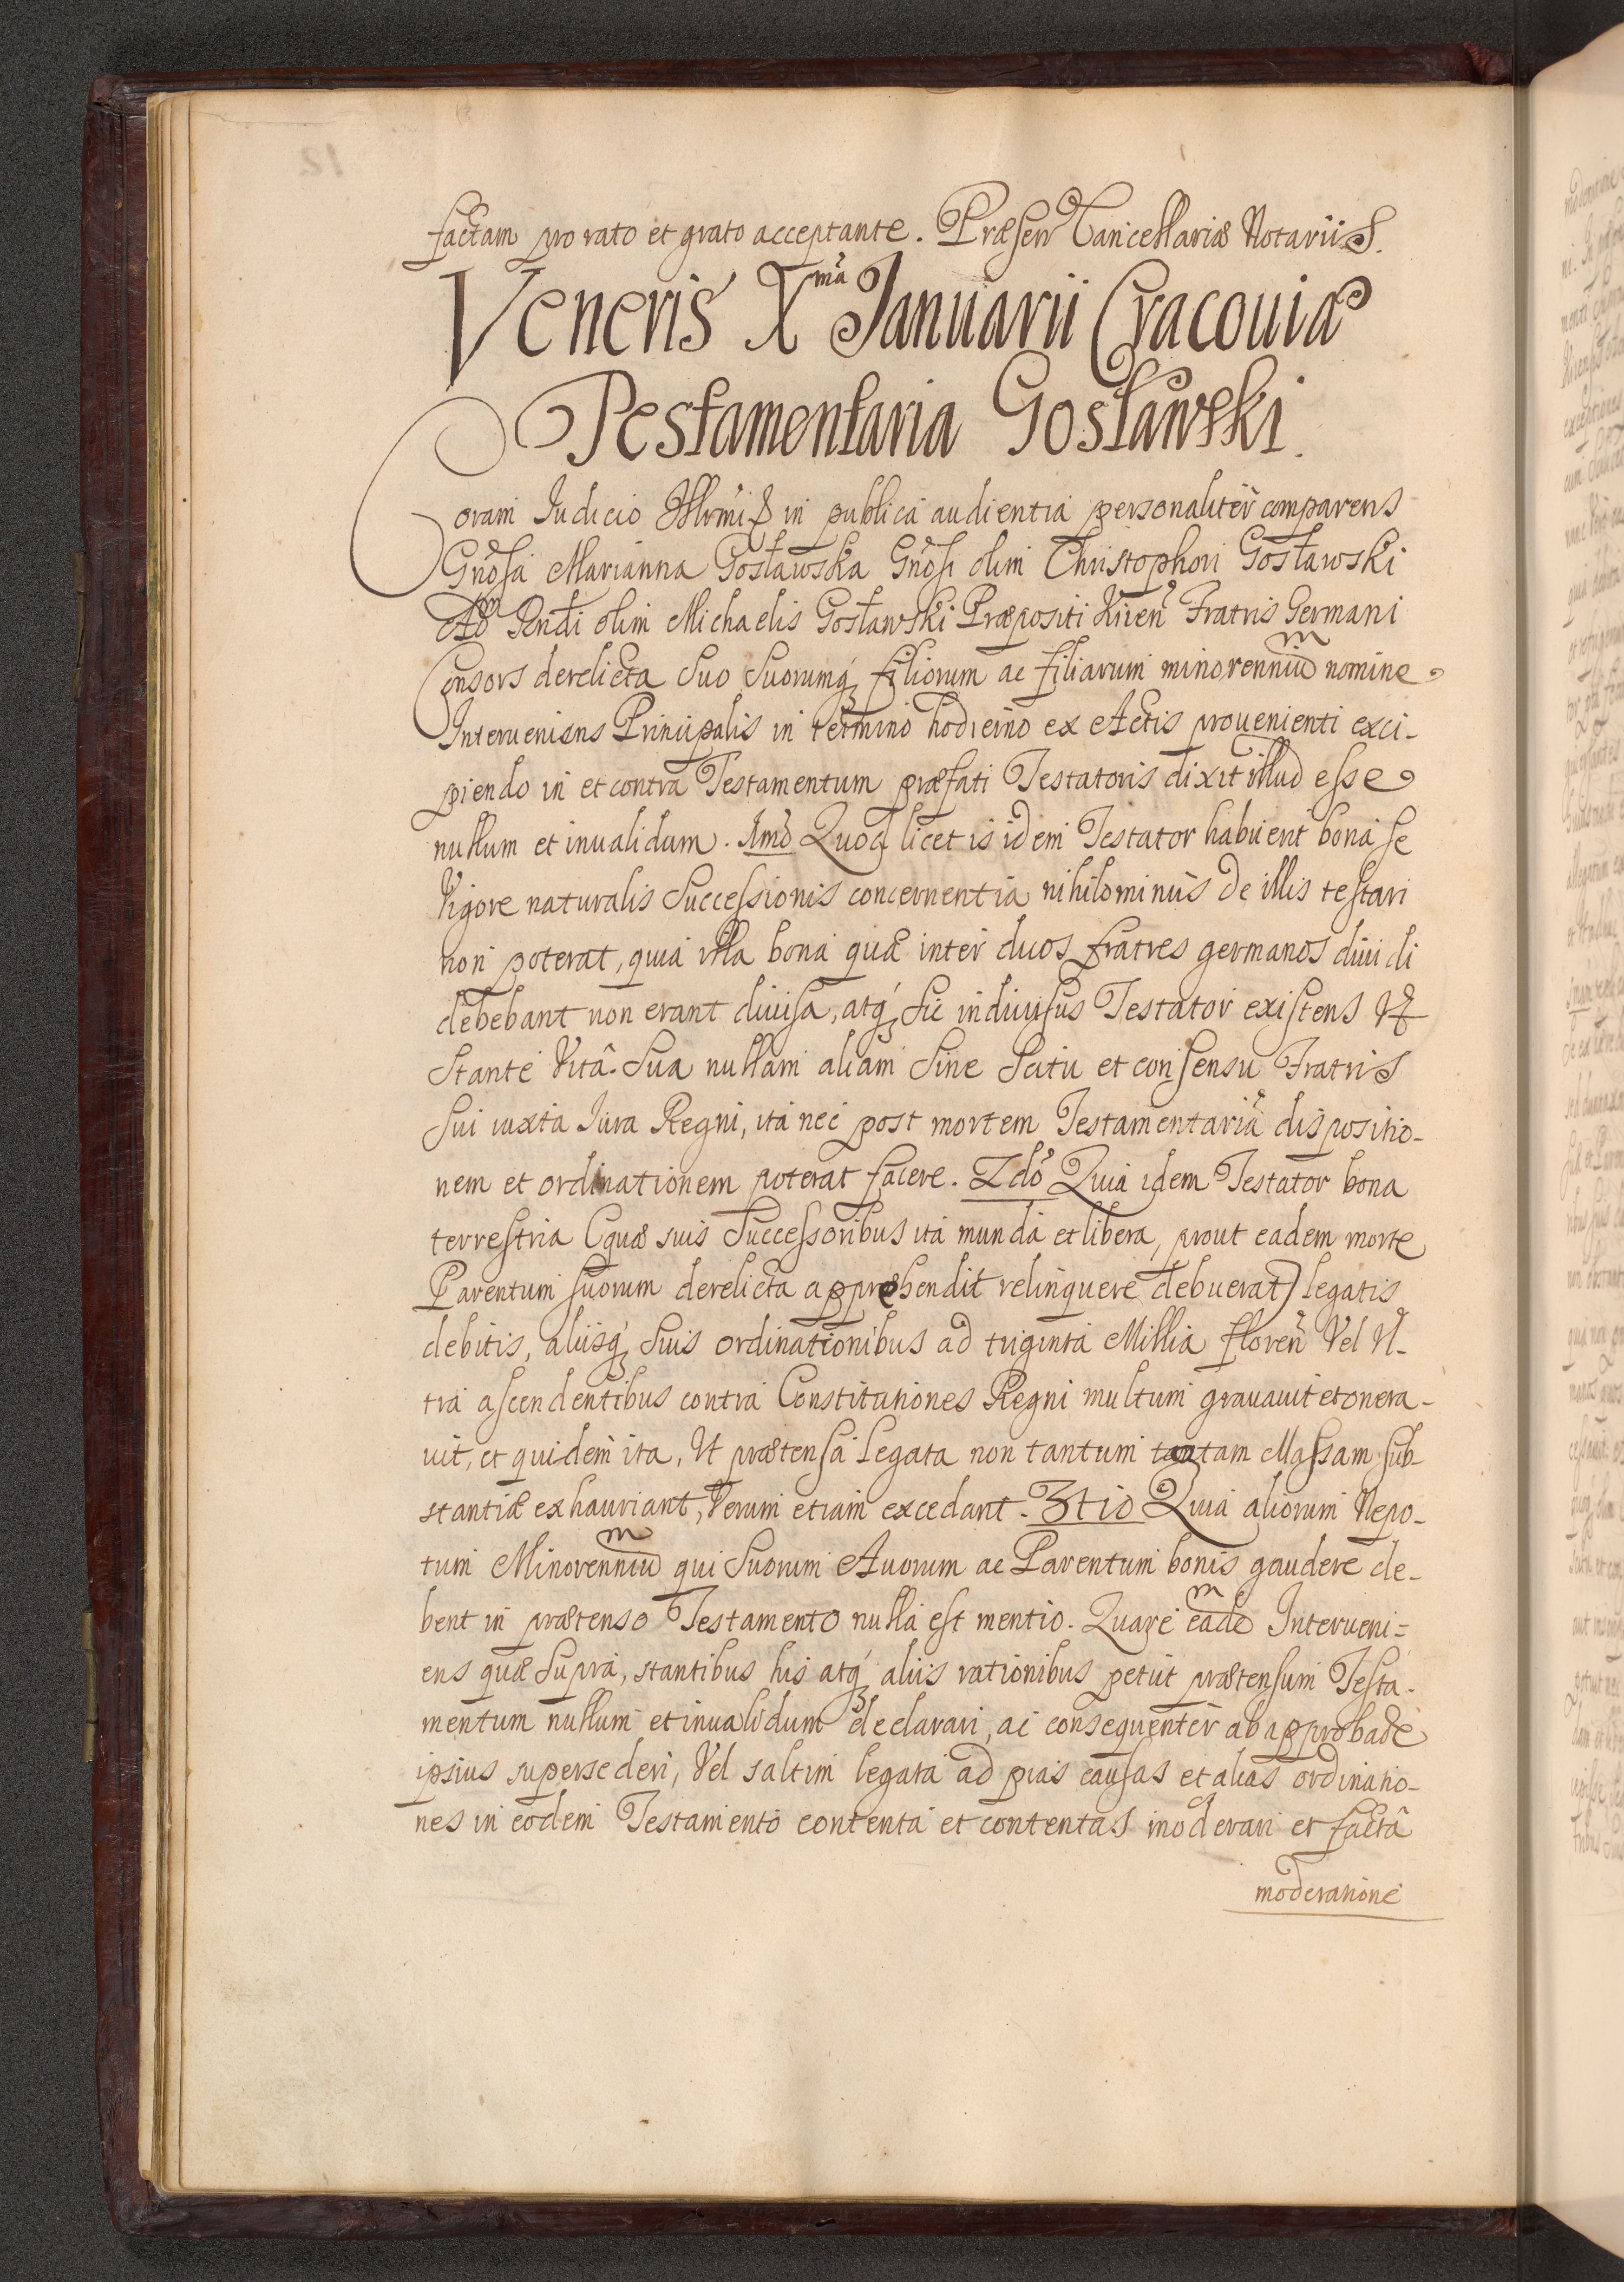 factam pro rato et grato acceptante. Præsen Cancellariæ Notariis.
Veneris X^ma Januarii Cracouiæ
Testamentaria Gosławski.
Coram Iudicio in publica audientia personaliter comparens
Gnosa Marianna Gosławska Gnosi olim Christophori Gosławski
Adm Rndi olim Michaelis Gosławski Præpositi Fratris Germani
Consors derelicta Suo Suorumq filiorum ac filiarum minorenniū^m nomine
Interueniens Principalis in termino hodierno ex Actis prouenienti exci-
piendo in et contra Testamentum præfati Testatoris dixit illud esse
nullum et inualidum. Imo Quod licet is idem Testator habuerit bona se
Vigore naturalis Successionis concernentia nihilominus de illis testari
non poterat, quia illa bona quæ inter duos fratres germanos diuidi
debebant non erant diuisa, atq sic indiuisus Testator existens Vt
stante Vitâ Sua nullam aliam Sine Scitu et consensu Fratris
Sui iuxta Iura Regni, ita nec post mortem Testamentariā dispositio-
nem et ordinationem poterat facere. 2do Quia idem Testator bona
terrestria (quæ suis Successoribus ita munda et libera, prout eadem morte
Parentum suorum derelicta appræhendit relinquere debuerat) legatis
debitis, aliisq Suis ordinationibus ad triginta Millia floren Vel Vl-
tra ascendentibus contra Constitutiones Regni multum grauauit et onera-
uit, et quidem ita, Vt prætensa Legata non tantum tantam Massam sub-
stantiæ exhauriant, Verum etiam excedant. 3tio Quia aliorum Nepo-
tum Minorenniū^m qui Suorum Auorum ac Parentum bonis gaudere de-
bent in prætenso Testamento nulla est mentio. Quare eade^m Interueni-
ens quæ Supra, stantibus his atq aliis rationibus petiit prætensum Testa-
mentum nullum et inualidum declarari, ac consequenter ab approbaõe
ipsius supersederi, Vel saltim legata ad pias causas et alias ordinatio-
nes in eodem Testamento contenta et contentas moderari et factâ
moderatione